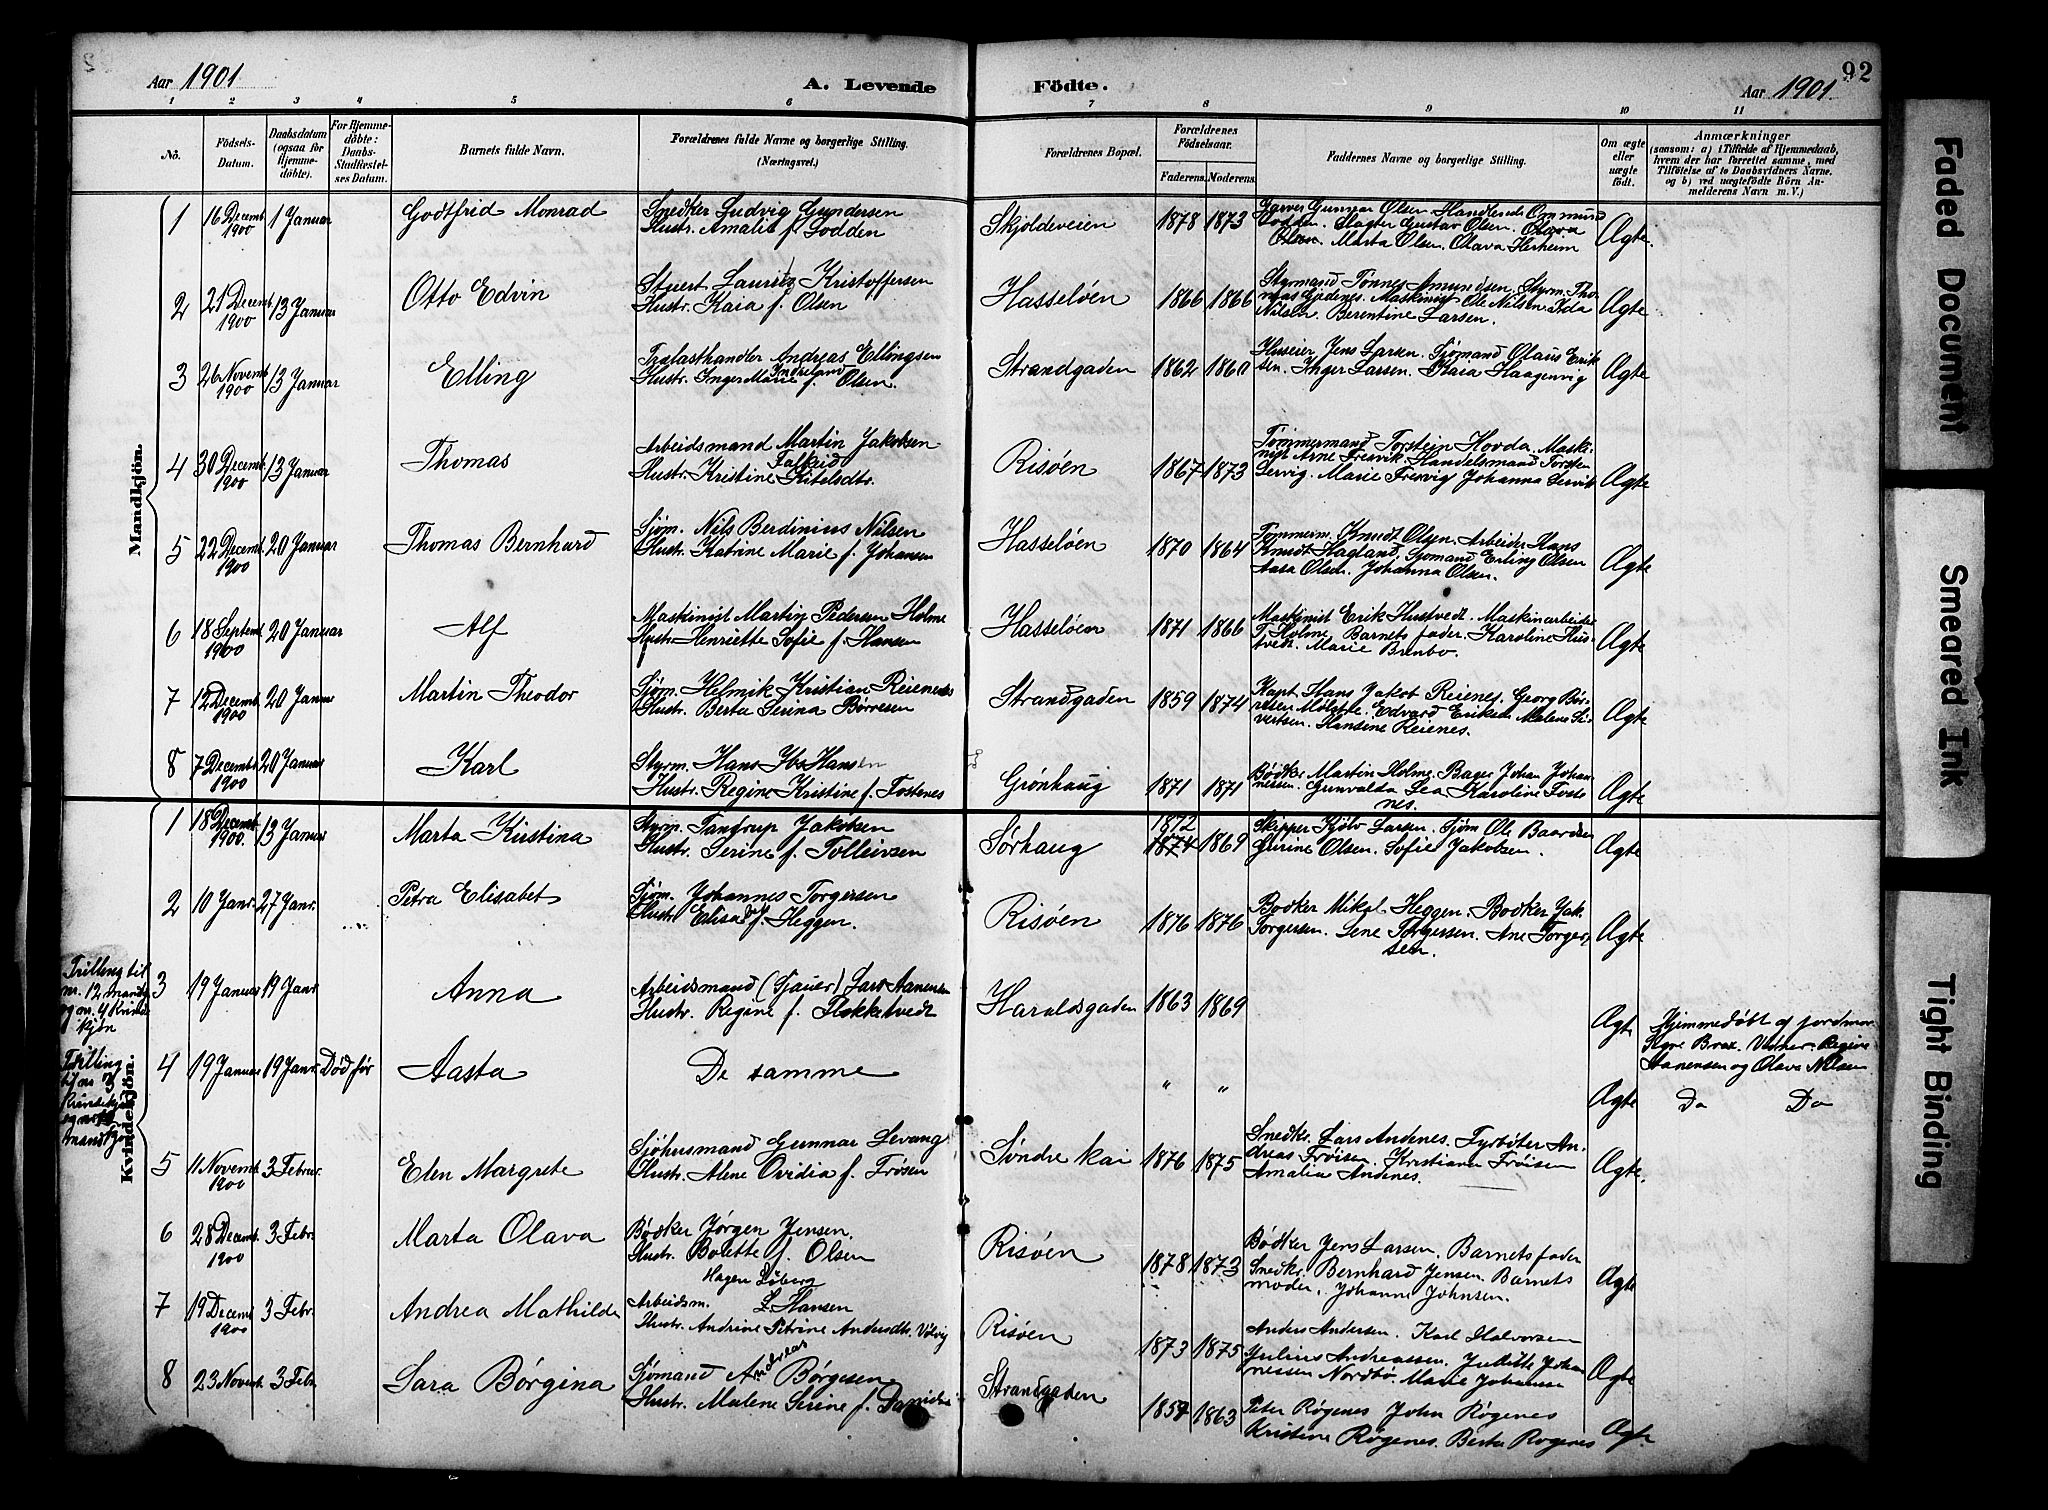 Aar 1901
A. Levende
Födte.
Aar 1901
92
1 2 3 4 5 6 7 8 9 10 11
No.
Födsels-
Datum.
Daabsdatum
(ogsaa for
Hjemme-
döbte).
For Hjemme-
döbte:
Daabs-
Stadfæstel-
ses Datum.
Barnets fulde Navn.
Forældrenes fulde Navne og borgerlige Stilling.
(Næringsvei.)
Forældrenes Bopæl.
Forældrenes
Födselsaar.
Faderens. Moderens.
Faddernes Navne og borgerlige Stilling.
Om ægte
eller
uægte
födt.
Anmærkninger
(saasom: a) i Tilfælde af Hjemmedaab,
hvem der har forrettet samme, med
Tilföielse af to Daabsvidners Navne.
og b) ved uægtefödte Börn An-
melderens Navn m. V.)
Mandkjön.
1 16 Decemb. 1900 1 Januar
Godtfrid Monrad
Snedker Ludvig Gundersen
Hustr. Amalie f. Lodden
Skjoldeveien 1878 1873
Garver Gunnar Olsen. Handlende Ommund
Lodden. Slagter Gustav Olsen. Olava
Olsen. Marta Olsen. Olava Herheim
Ægte.
2 21 Decemb. 1900 13 Januar
Otto Edvin
Stuert Lauritz Kristoffersen
Hustr. Kaia f. Olsen
Hasseløen 1866 1866
Styrmand Tønnes Amundsen. Styrm. Tho-
mas Endenes. Maskinist Ole Nilsen. Ida
Nilsen. Berentine Larsen.
Ægte
3 26 Novemb. 1900 13 Januar
Elling
Trælasthandler Andreas Ellingsen
Indreland
Hustr. Inger Marie f. Olsen.
Strandgaden 1862 1860
Huseier Jens Larsen. Sjømand Olaus Erik
sen. Inger Larsen. Kaia Haagenvig
Ægte
4 30 Decemb. 1900 13 Januar
Thomas
Arbeidsmand Martin Jakobsen
Falkeid
Hustr. Kristine Kitelsdtr.
Risøen 1867 1873
Tømmermand Torstein Hovda. Maski-
nist Arne Fresvik. Handelsmand Torsten
Servig. Marie Fresvig Johanna Servik
Ægte
5 22 Decemb. 1900 20 Januar
Thomas Bernhard
Sjøm. Nils Berdinius Nilsen
Hustr. Katrine Marie f. Johansen
Hasseløen 1870 1864
Tømmerm. Knudt Olsen. Arbeider Hans
Knudt Hagland. Sjømand Erling Olsen
Aasa Olsen. Johanna Olsen.
Ægte
6 18 Septemb. 1900 20 Januar
Alf
Maskinist Martin Pedersen Holme
Hustr. Henriette Sofie f. Hansen
Hasseløen 1871 1866
Maskinist Erik Hustvedt. Maskinarbeider
T. Holme. Barnets fader. Karoline Hus-
tvedt. Marie Brenbo.
Ægte
7 12 Decemb. 1900 20 Januar
Martin Theodor
Sjøm. Helmik Kristian Reienes
Hustr. Berta Serina Børresen
Strandgaden 1859 1874
Kapt. Hans Jakob Reienes. Georg Bør-
resen Edvard Eriksen Malene Si-
vertsen. Hansine Reienes.
Ægte
8 7 Decemb. 1900 20 Januar
Karl
Styrm. Hans Ibs Hansen
Hustr. Regine Kristine f. Fosenes
Grønhaug 1871 1871
Bødker Martin Holme. Bager Johan Johan-
nessen. Gunvalda Lea Karoline Foste
nes.
Ægte
Kvindekjön.
1 18 Decemb. 1900. 13 Januar
Marta Kirstina
Styrm. Tandrup Jakobsen
Hustr. Serine f. Tolleivsen
Sørhaug 1872 1874 1869
Skipper Kjølv Larsen. Sjøm Ole Baardsen
Gurine Olsen. Sofie Jakobsen.
Ægte
2 10 Janr. 27 Janr.
Petra Elisabet
Sjøm. Johannes Torgersen
Hustr Elisabet f. Heggen.
Risøen 1876 1876
Bødker Mikal Heggen. Bødker Jak.
Torgersen. Lene Torgersen. Ane Torger-
sen.
Ægte
Trilling til
nr. 12 mandkj
og nr. 4 Kvinde
kjøn
3 19 Januar 19 Janr
Anna
Arbeidsmand (Gjauer) Lars Aanensen
Hustr. Regine f. Flokketvedt
Haraldsgaden 1863 1869
Ægte
Hjemmedøbt af jordmor
Signe Brox. Vidner. Regine
Aanensen og Olava Nilsen
Trilling
til nr 3
Kvindekjøn
og nr 12
mandkjøn
4 19 Januar 19 Janr. Død før
Aasta
De samme
" "
Ægte
Do Do
5 11 Novemb. 1900 3 Februar.
Elen Margrete
Sjøhusmand Gunnar Levang
Hustr. Alene Ovidia f. Frøsen
Søndre kai 1876 1875
Snedkr. Lars Andenes. Fyrbøter An-
dreas Frøisen. Kristiane Frøisen
Amalia Andenes.
Ægte.
6 28 Decemb. 1900 3 Febr.
Marta Olava
Bødker Jørgen Jensen.
Hustr. Bolette f. Olsen
Risøen 1878 1873
Bødker Jens Larsen. Barnets fader
Snedkr. Bernhard Jensen. Barnets
moder. Johanne Johnsen.
Ægte
7 19 Decemb 1900 3 Febr.
Andrea Mathilde
Hagen Løberg
Arbeidsm. L. Hansen
Hustr. Andrine Petrine Andersdtr. Völvig
Risøen 1873 1875
Anders Andersen. Karl Halvorsen
Julius Andreassen. Juditte Johan
nessen Nordbø. Marie Johansen
Ægte
8 23 Novemb. 3 Febr.
Sara Børgina
Sjømand Andreas Børgesen
Hustr. Malene Serine f. Danielsen
Strandgaden 1857 1863
Peter Røgenes John Røgenes
Kristine Røgenes. Berta Røgenes
Ægte.
Faded Document
Smeared Ink
Tight Binding